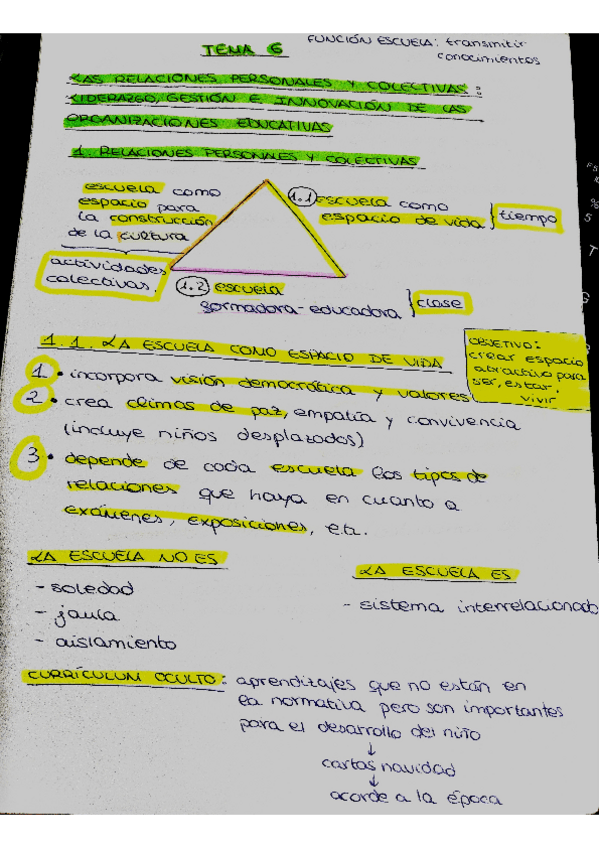 FUNCIÓN ESCUELA: transmitir
conocimientos
TEMA 6
LAS RELACIONES PERSONALES Y COLECTIVAS:
LIDERAZGO, GESTIÓN E INNOVACIÓN DE LAS
ORGANIZACIONES EDUCATIVAS
1. RELACIONES PERSONALES Y COLECTIVAS
escuela como
espacio para
la construcción
de la cultura
actividades
colectivas
1.1 escuela como
espacio de vida
tiempo
1.2 escuela
formadora-educadora
clase
1.1. LA ESCUELA COMO ESPACIO DE VIDA
OBJETIVO:
crear espacio
atractivo para
ser, estar,
vivir
1 • incorpora visión democrática y valores
2 • crea climas de paz, empatía y convivencia
(incluye niños desplazados)
3 • depende de cada escuela los tipos de
relaciones que haya en cuanto a
exámenes, exposiciones, etc.
LA ESCUELA NO ES
- soledad
- jaula
- aislamiento
LA ESCUELA ES
- sistema interrelacionado
CURRÍCULUM OCULTO: aprendizajes que no están en
la normativa pero son importantes
para el desarrollo del niño
↓
cartas navidad
↓
acorde a la época